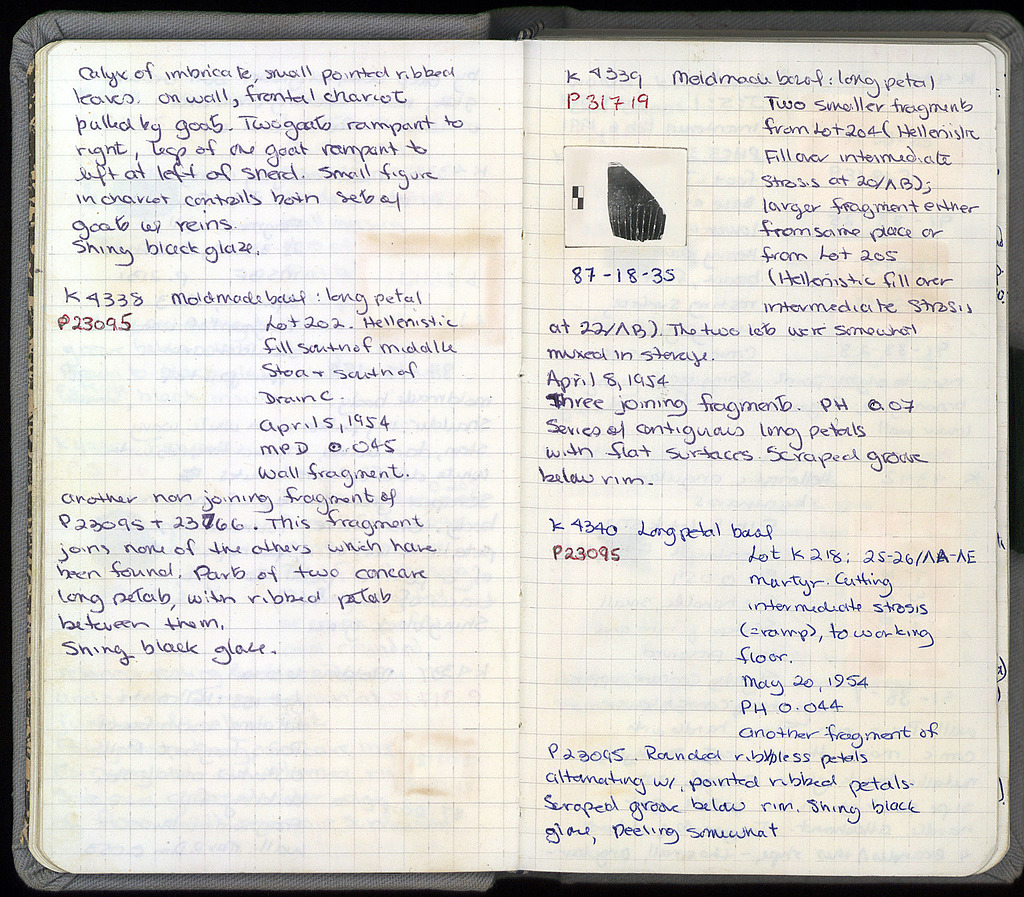 Calyx of imbricate, small pointed ribbed
leaves. On wall, frontal chariot
pulled by goats. Two goats rampant to
right, legs of one goat rampant to
left at left of sherd. Small figure
in chariot controlls both sets of
goats w/ reins.
Shiny black glaze.
K 4338 Moldmade bowl: long petal
P23095
Lot 202. Hellenistic
fill south of middle
Stoa + south of
Drain C.
April 5, 1954
MPD 0.045
Wall fragment.
another non joining fragment of
P23095 + 23766. This fragment
joins none of the others which have
been found. Parts of two concave
long petals, with ribbed petals
between them.
Shiny black glaze.
K 4339 Moldmade bowl: long petal
P 31719
Two smaller fragments
from Lot 204 (Hellenistic
Fill over intermediate
Strosis at 20/ΛB);
larger fragment either
from same place or
from Lot 205
87-18-35
(Hellenistic fill over
intermediate strosis
at 22/ΛB). The two lots were somewhat
mixed in storage.
April 8, 1954
Three joining fragments. PH 0.07
Series of contiguous long petals
with flat surfaces. Scraped groove
below rim.
K 4340 Long petal bowl
P23095
Lot K 218: 25-26/ΛA-ΛE
Martyr. Cutting
intermediate strosis
(=ramp), to working
floor.
May 20, 1954
PH 0.044
another fragment of
P23095. Rounded ribbless petals
alternating w/ pointed ribbed petals.
Scraped groove below rim. Shiny black
glaze, peeling somewhat